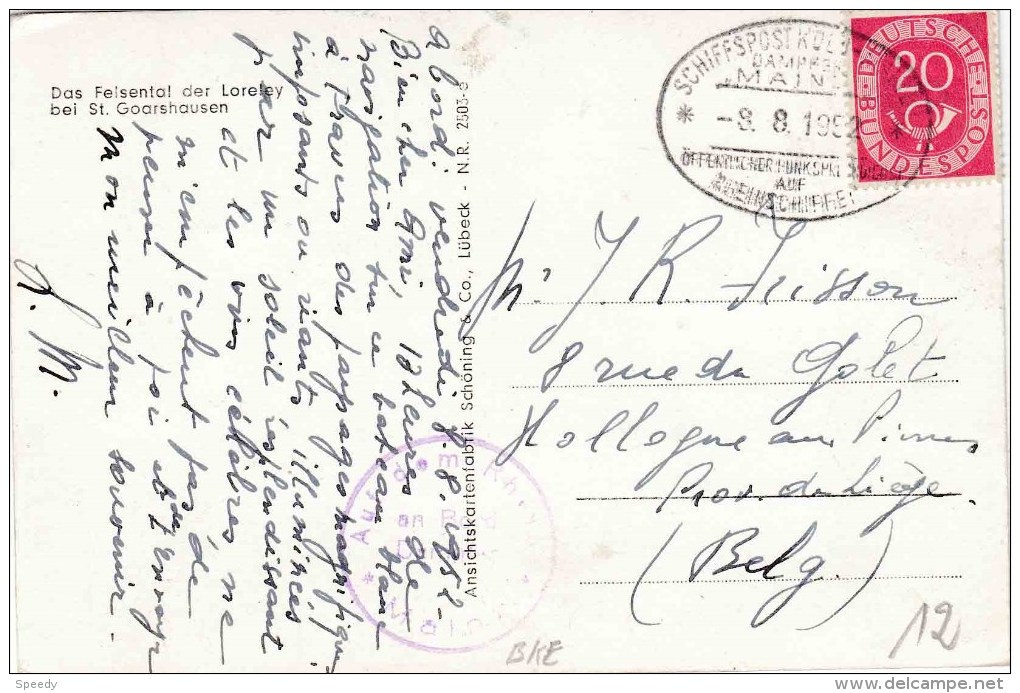 Das Felsental der Loreley
bei St. Goarshausen
a bord. vendredi 8.8.1952
Bien cher ami, 13 heures de
navigation sur ce bateau Mainz
à travers des paysages magnifiques
imposants ou riants illuminés
par un soleil resplendissant
et les vins célèbres ne
m'empêchent pas de
penser à toi et de t'envoyer
mon meilleur souvenir.
Ansichtskartenfabrik Schöning & Co., Lübeck - N.R. 2503-e
SCHIFFSPOST KÖLN
DAMPFER
„MAINZ
* -8.8.1952 *
ÖFFENTLICHER FUNKSPRECHDIENST
AUF
RHEINSCHIFFEN
DEUTSCHE
BUNDESPOST
20
Mr. J. R. Frisson
8 rue du Golet
Hollogne aux Pierres
Prov. de Liège
(Belg.)
Aus dem
an Bord
12
BKE
Speedy
delcampe.net